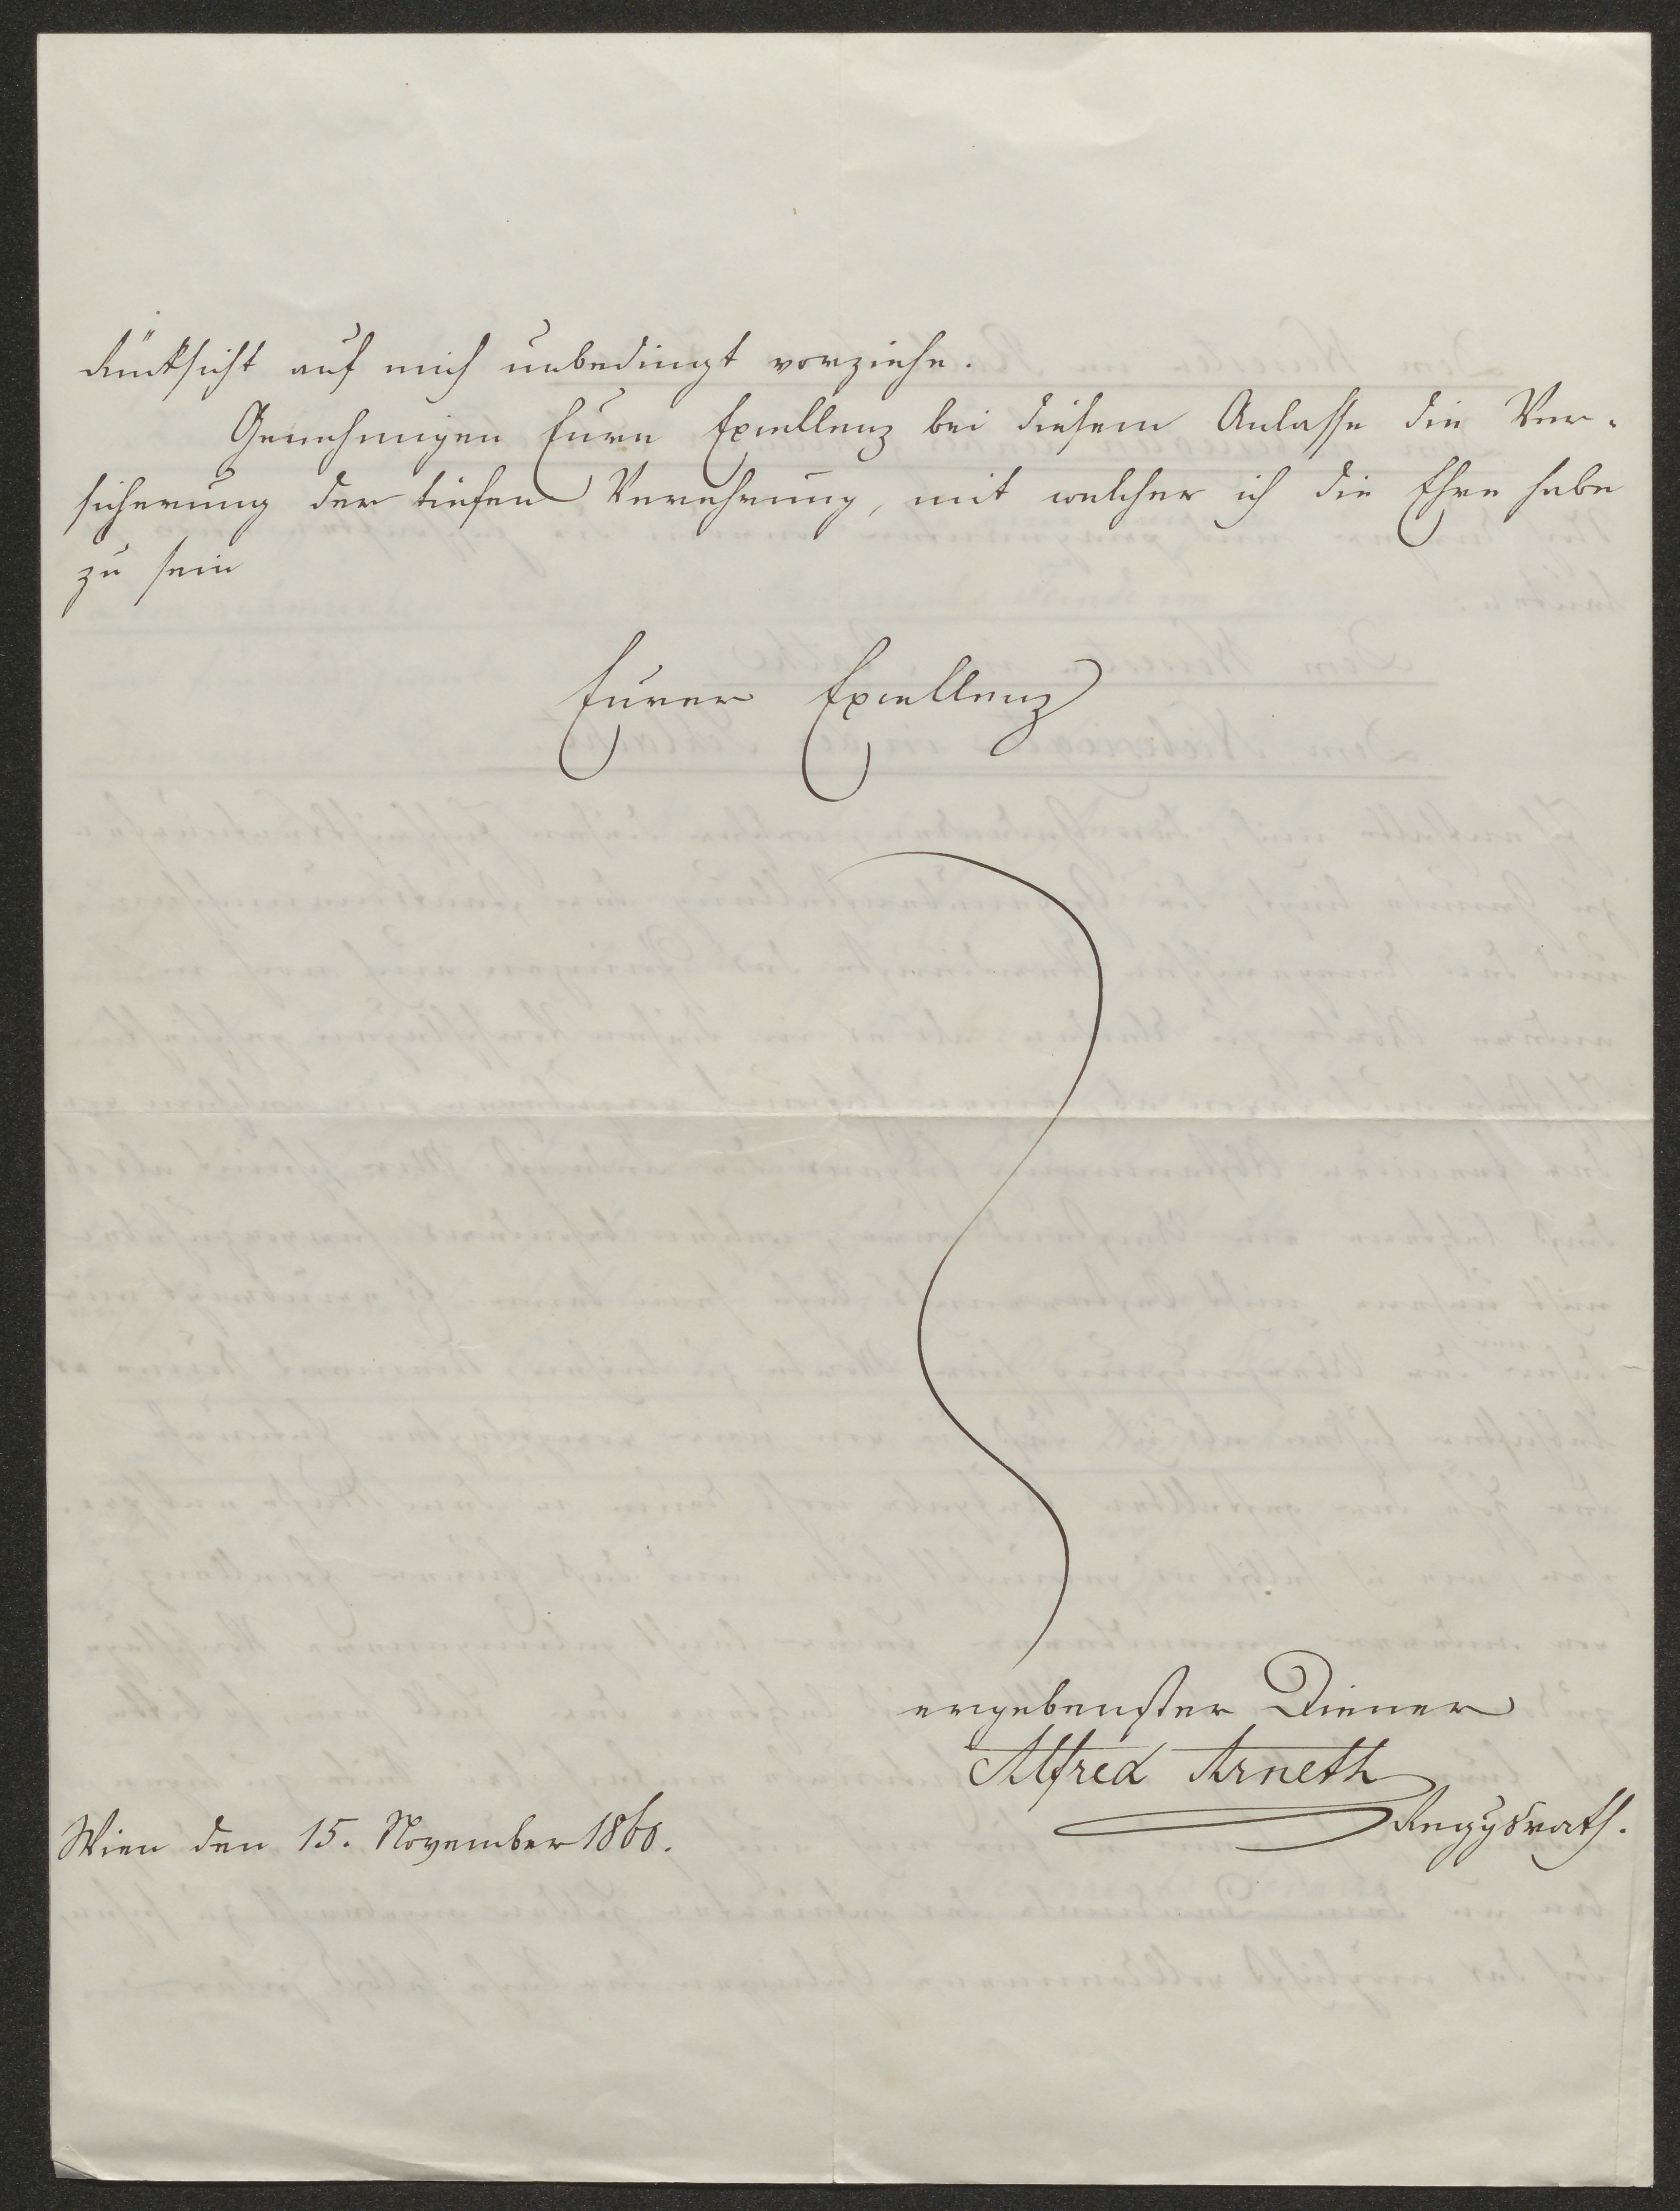 Rücksicht auf mich unbedingt vorziehe.
Genehmigen Eure Excellenz bei diesem Anlasse die Ver-
sicherung der tiefen Verehrung, mit welcher ich die Ehre habe
zu sein
Eurer Excellenz
ergebenster Diener
Alfred Arneth
Reggsrath.
Wien den 15. November 1860.